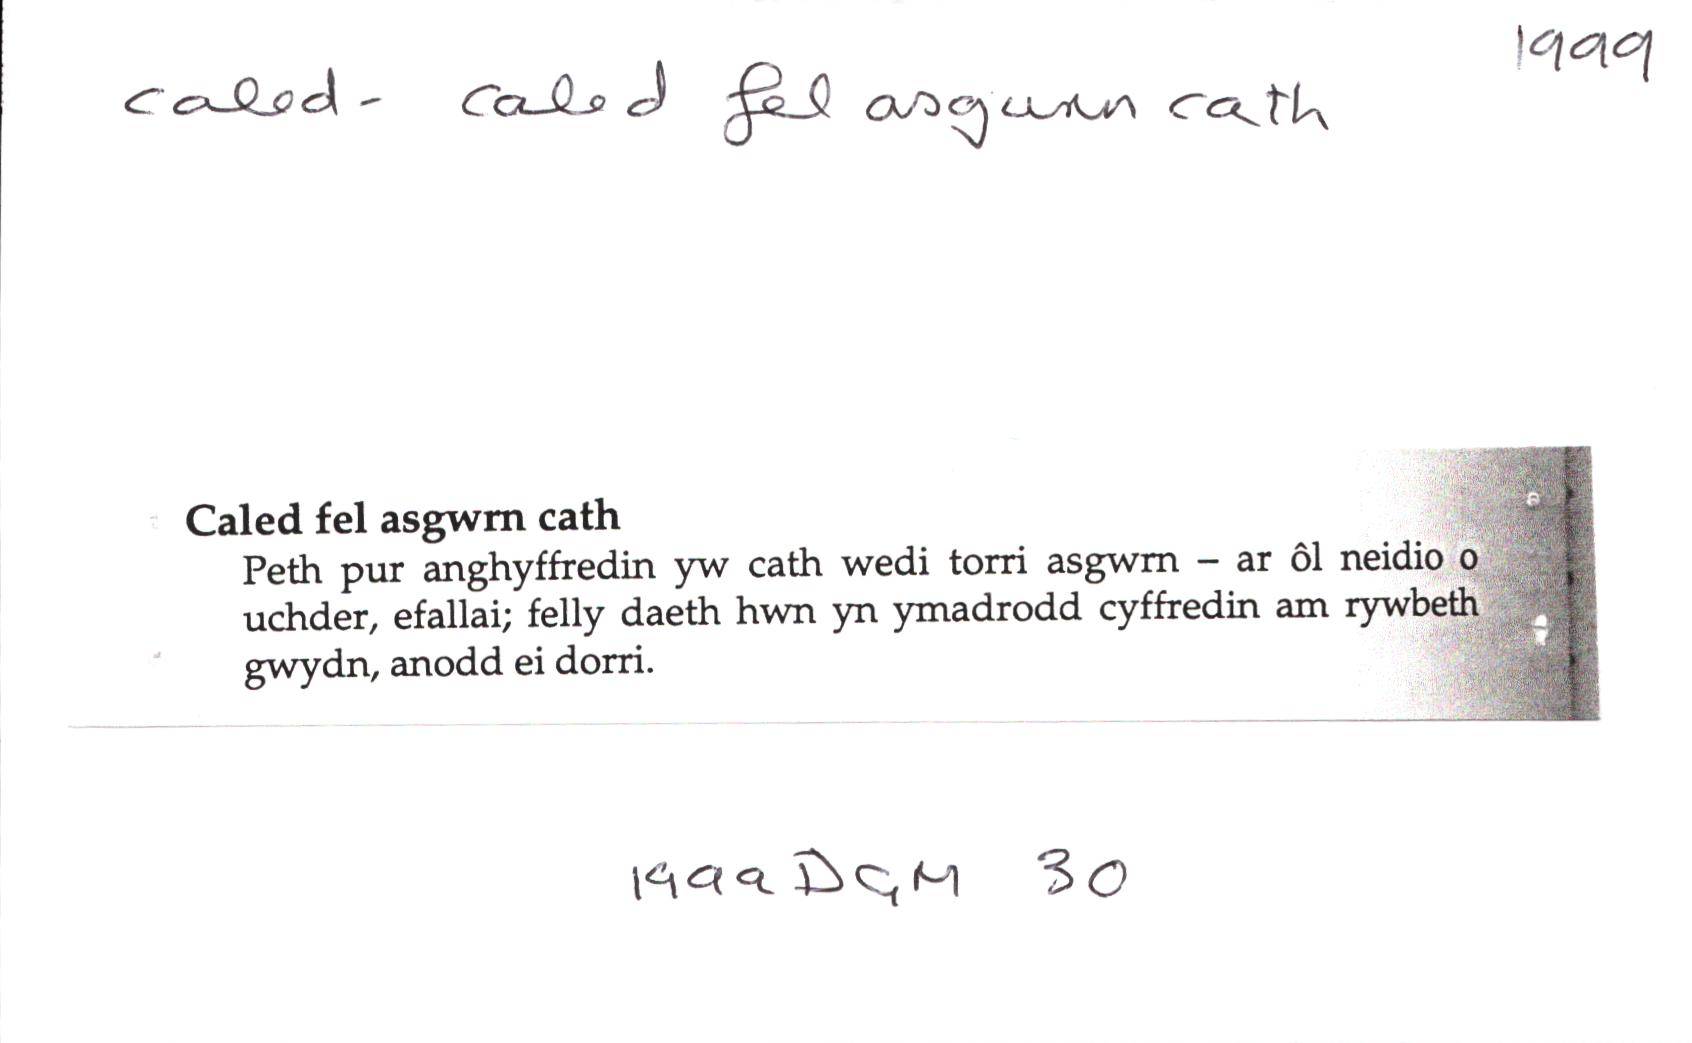 1999
caled - caled fel asgwrn cath
Caled fel asgwrn cath
Peth pur anghyffredin yw cath wedi torri asgwrn – ar ôl neidio o
uchder, efallai; felly daeth hwn yn ymadrodd cyffredin am rywbeth
gwydn, anodd ei dorri.
1999 DGM 30